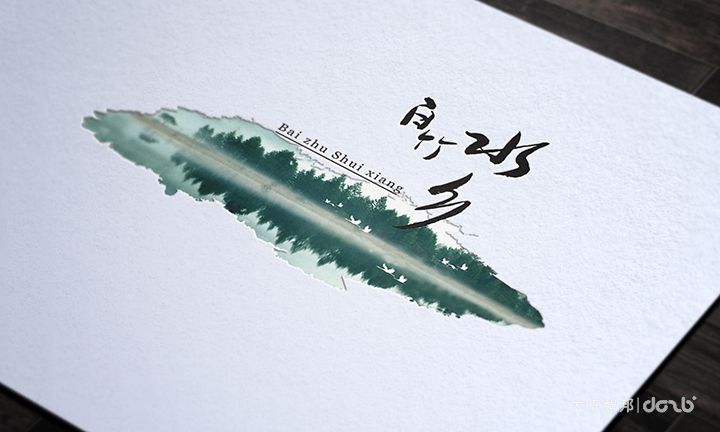 白竹水
乡
Bai zhu Shui xiang